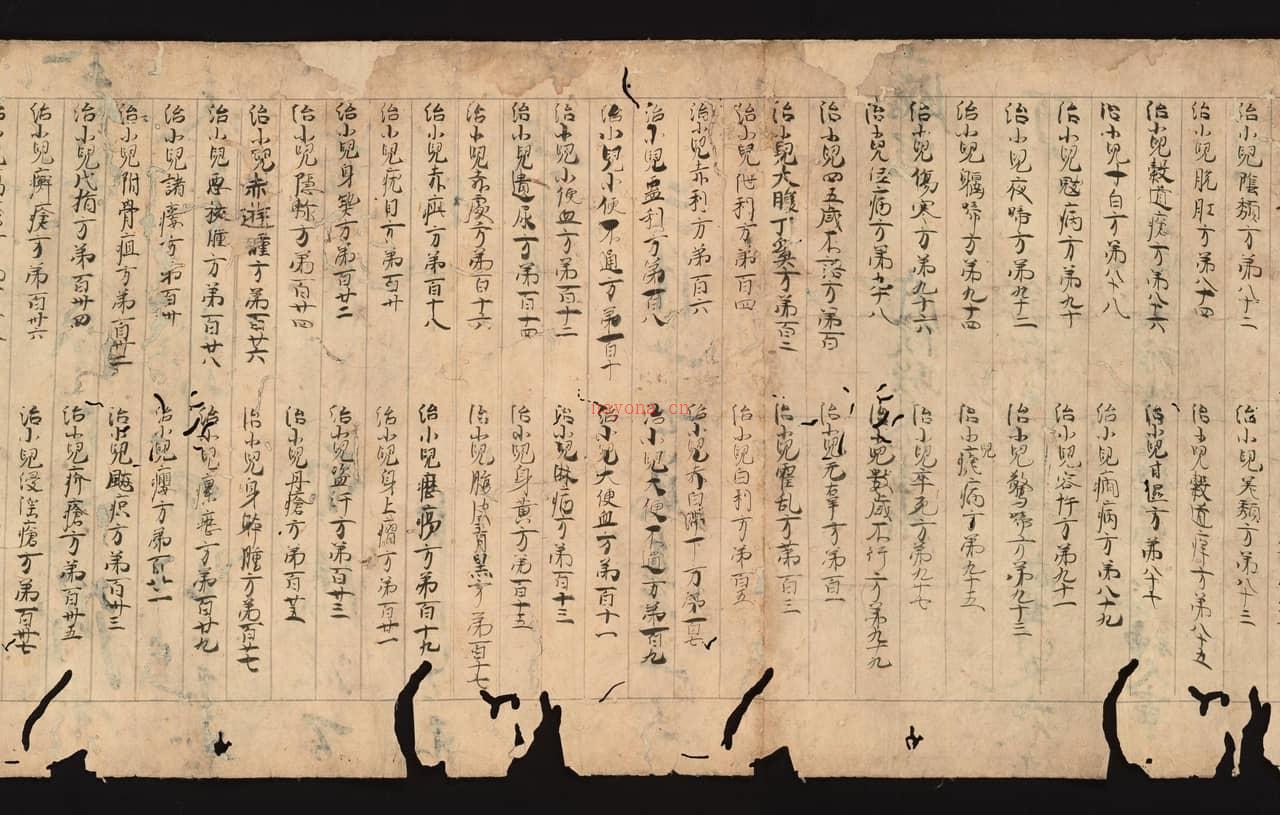 治小兒陰㿗方第八十二
治小兒㿗方第八十三
治小兒脱肛方第八十四
治小兒穀道痒方第八十五
治小兒穀道瘡方第八十六
治小兒甘濕方第八十七
治小兒寸白方第八十八
治小兒癇病方第八十九
治小兒魃病方第九十
治小兒客忤方第九十一
治小兒夜啼方第九十二
治小兒驚啼方第九十三
治小兒躽啼方第九十四
治小兒瘧病方第九十五
治小兒傷寒方第九十六
治小兒卒死方第九十七
治小兒注病方第九十八
治小兒數歲不行方第九十九
治小兒四五歲不語方第百
治小兒无辜方第百一
治小兒大腹丁奚方第百二
治小兒霍乱方第百三
治小兒泄利方第百四
治小兒白利方第百五
治小兒赤利方第百六
治小兒赤白滯下方第百七
治小兒蠱利方第百八
治小兒大便不通方第百九
治小兒小便不通方第百十
治小兒大便血方第百十一
治小兒小便血方第百十二
治小兒淋病方第百十三
治小兒遺尿方第百十四
治小兒身黄方第百十五
治小兒赤處方第百十六
治小兒腹皮青黑方第百十七
治小兒赤疵方第百十八
治小兒癧瘍方第百十九
治小兒疣目方第百廿
治小兒身上瘤方第百廿一
治小兒身熱方第百廿二
治小兒盗汗方第百廿三
治小兒隱軫方第百廿四
治小兒丹瘡方第百廿五
治小兒赤遊腫方第百廿六
治小兒身躰腫方第百廿七
治小兒惡核腫方第百廿八
治小兒瘰癧方第百廿九
治小兒諸瘻方第百卅
治小兒癭方第百卅一
治小兒附骨疽方第百卅二
治小兒瘭疽方第百卅三
治小兒代指方第百卅四
治小兒疥瘡方第百卅五
治小兒癬瘡方第百卅六
治小兒侵淫瘡方第百卅七
nayona.cn